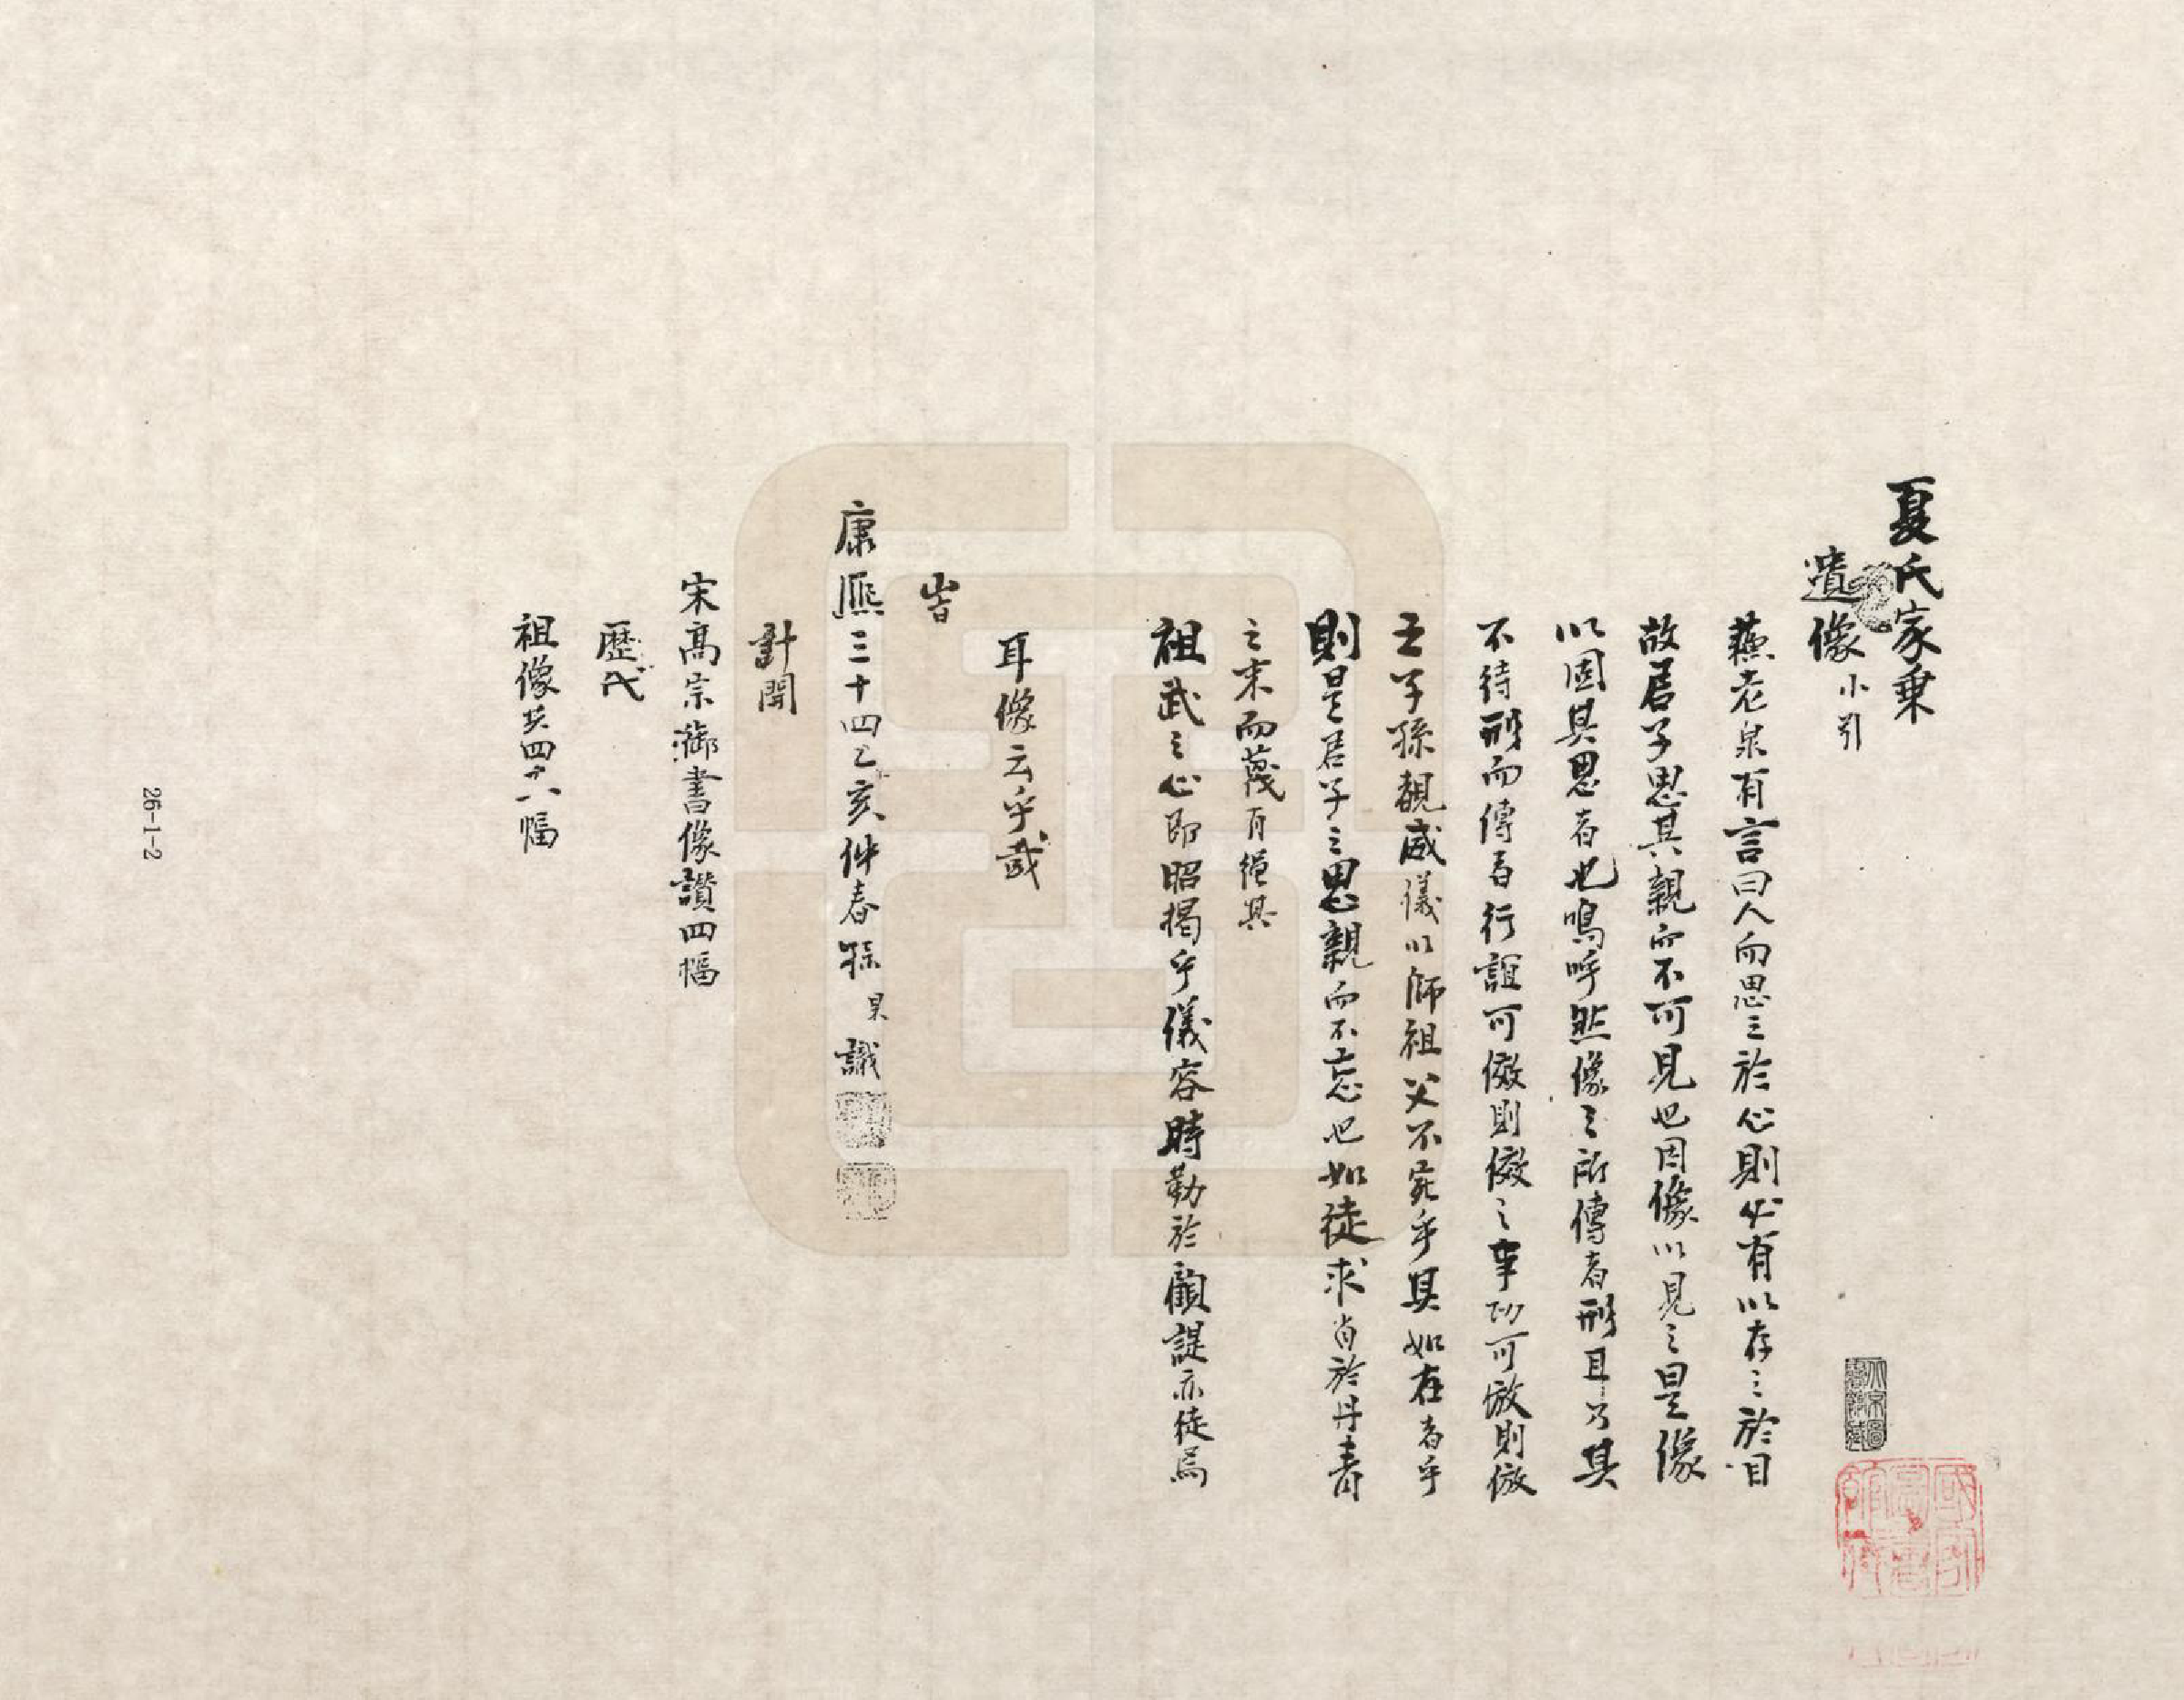 夏氏家乗
遺像小引
蘓老泉有言曰人而思之於心則必有以存之於目
故君子思其親而不可見也因像以見之是像
以固其思者也嗚呼然像之所傳者刑且乃其
不待刑而傳者行誼可儌則儌之事功可倣則倣
之子孫覩威儀以師祖父不宛乎其如在者乎
則是君子之思親而不忘也如徒求肖於丹青
之末而蔑有繩其
祖武之心即昭揭乎儀容時勒於顧諟亦徒焉
耳像云乎哉
旹
康熈三十四乙亥仲春孫 杲 識
計開
宋高宗御書像讃四幅
歷代
祖像共四十六幅
26-1-2